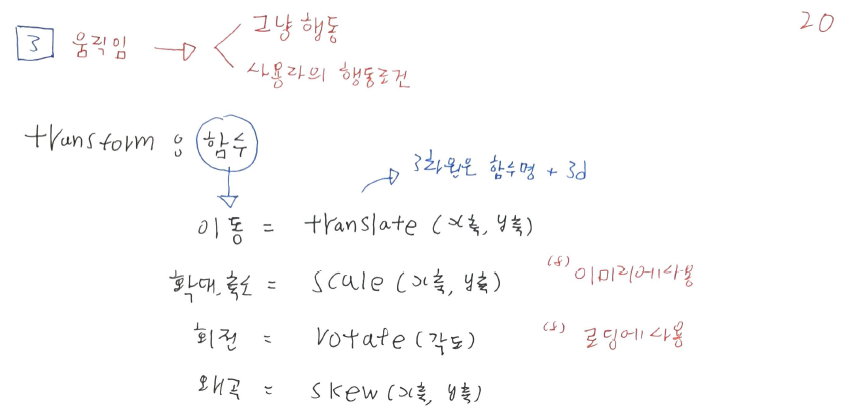 20
3 움직임 → 그냥 행동
사용자의 행동조건
transform : 함수
3차원은 함수명 + 3d
이동 = translate (x축, y축)
확대.축소 = scale (x축, y축) (ex) 이미지에 사용
회전 = rotate (각도) (ex) 로딩에 사용
왜곡 = skew (x축, y축)